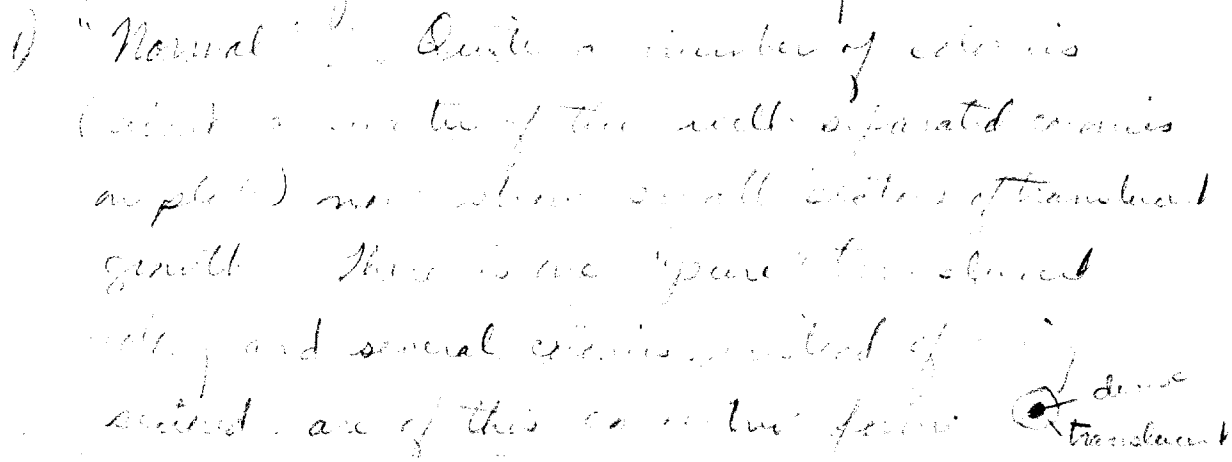 1) "Normal" : Quite a number of colonies
( of the well separated colonies
on plate) now show small sectors of translucent
growth There is one "pure" translucent
colony and several colonies, instead of being
sectored, are of this form dense
translucent